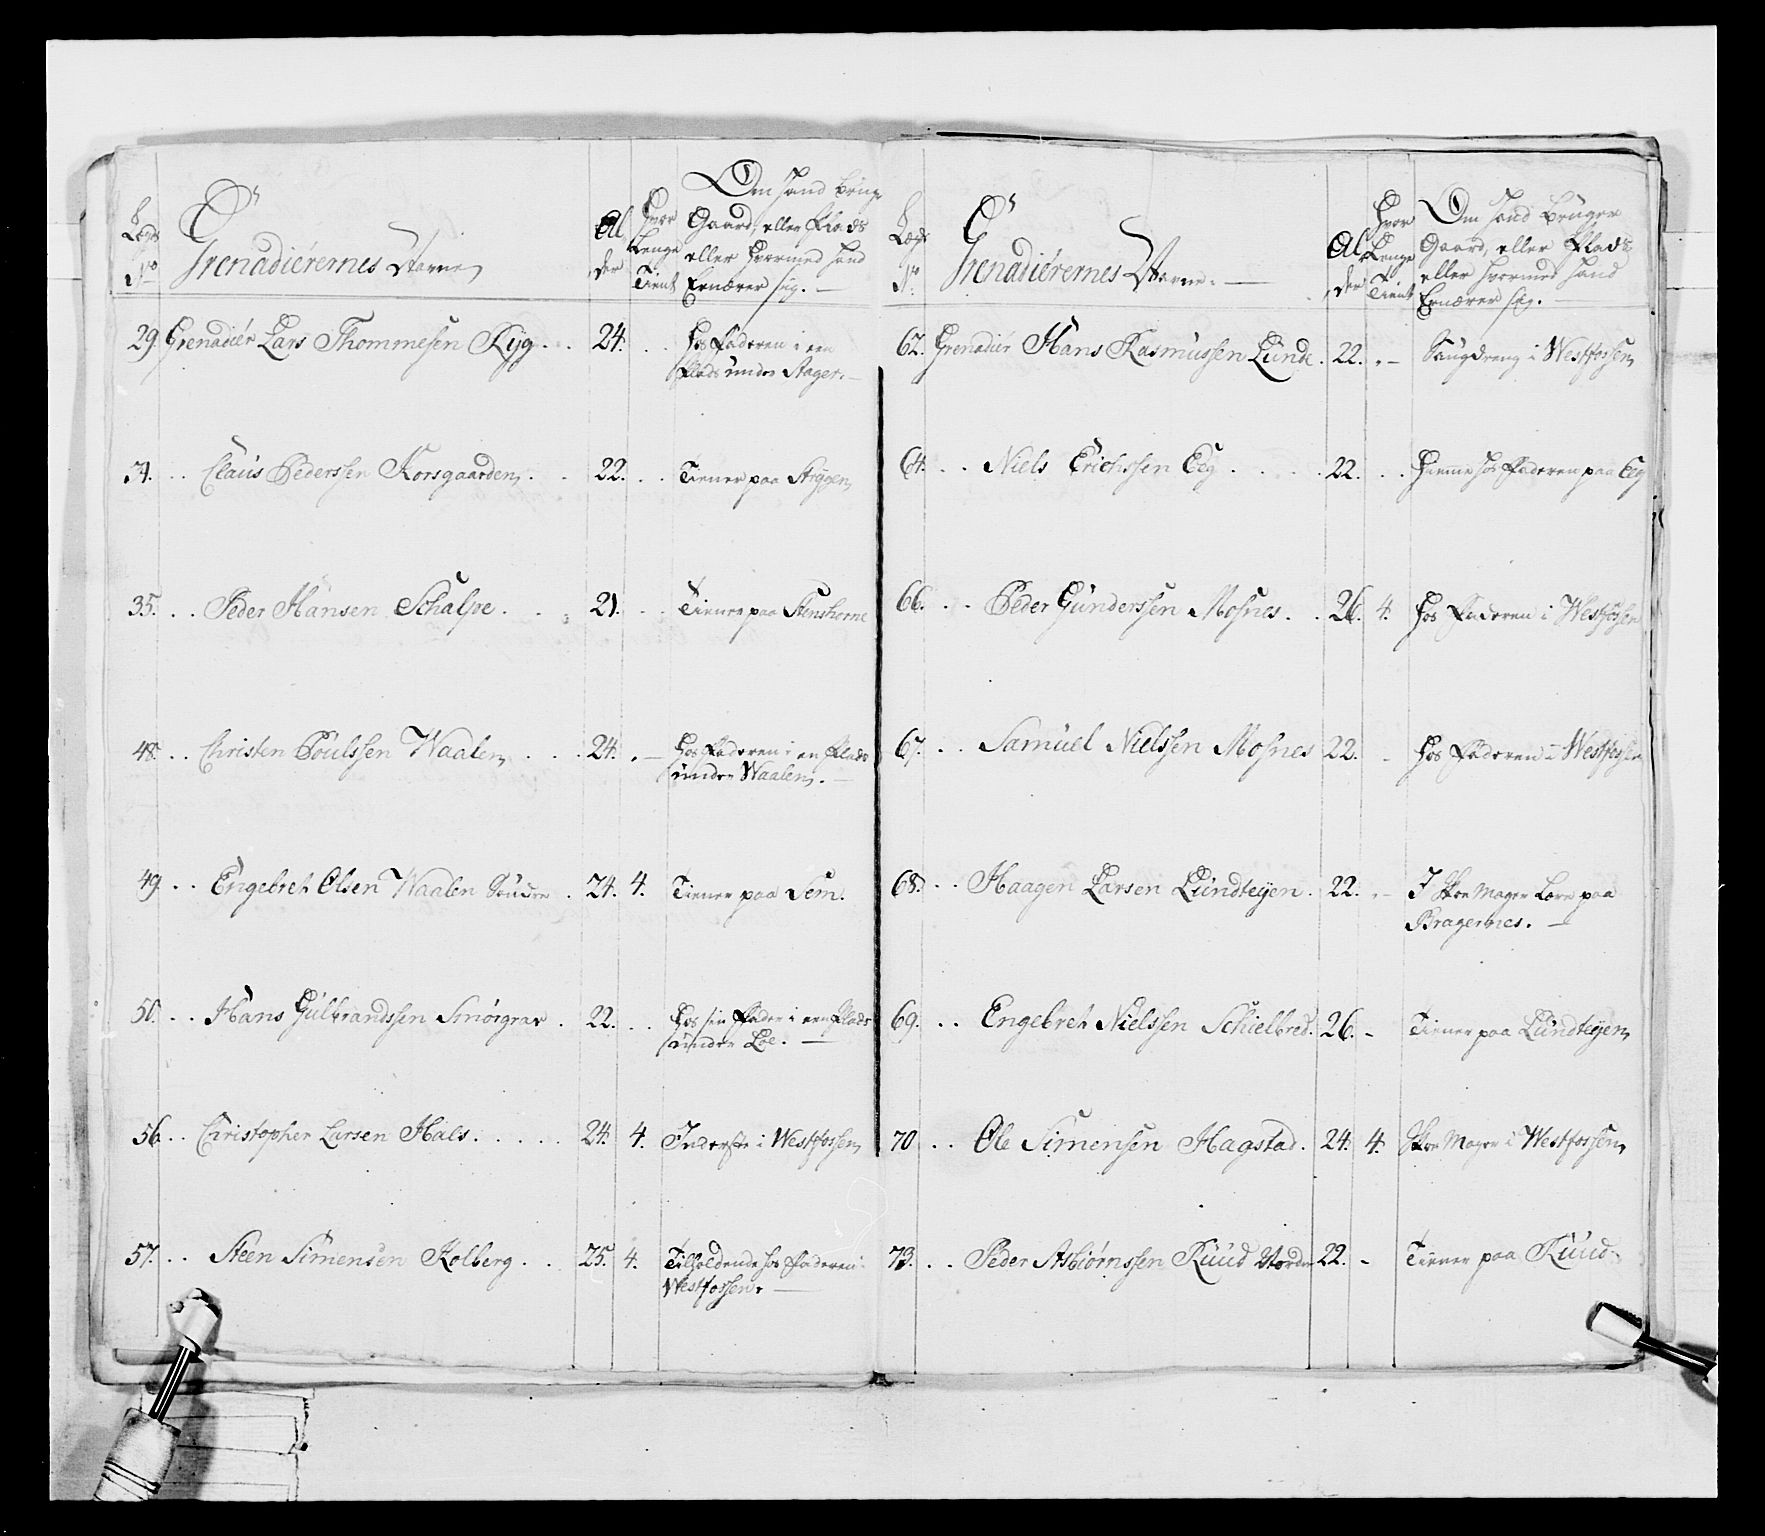 Lægs No
Grenadiérernes Navne
Al der
Hvor Lenge Tient
Om Hand Bruger Gaard, eller Plads eller Hvormed Hand Ernærer sig. —
29. Grenadiér Lars Thommesen Ryg . . 24. . . hos Faderen i een
Plads under Stager. —
31. . . Claus Pederssen Korsgaarden . . 22. . . Tiener paa Strygen
35. . . Peder Hansen Schalße . . 21. . . Tiener paa Stenshorne
48. . . Christen Poulssen Waalen . . . 24. . — hos Faderen i en Plads
under Waalen. —
49. . . Engebret Olsen Waalen Søndre . 24. 4. Tiener paa Sem.
50. . . Hans Gulbrandssen Smörgrav . 22. . . hos sin Fader i een Plads
under Loe. —
56. . . Christopher Larsen Hals . . . . . 24. 4. Inderste i Westfossen
57. . . Steen Simensen Kolberg . . 25. 4. Tilholdende hos Faderen i
Westfossen. —
Lægs No
Grenadiérernes Navne. —
Al der
Hvor Lenge Tient
Om Hand Bruger Gaard, eller Plads eller Hvormed Hand Ernærer sig. —
62. Grenadiér Hans Rasmussen Lunde . 22. . — Saugdreng i Westfossen
64. . . Niels Erichssen Eeg . . . . 22. . . hieme hos Faderen paa Eeg
66. . . Peder Gunderssen Mosnes . . 26. 4. hos Faderen i Westfossen
67. . . Samuel Nielssen Mosnes 22. - hos Faderen i Westfossen
68. . . Haagen Larsen Lundteyen . 22. . - I Skoe Mager Lære paa
Bragernes. —
69. . . Engebret Nielssen Schielbred. 26. - Tiener paa Lundteyen
70. . . Ole Simensen Hagstad. 24. 4. Skoe Mager i Westfossen
73. . . Peder Asbiørnssen Ruud Nordre 22. - Tiener paa Ruud.